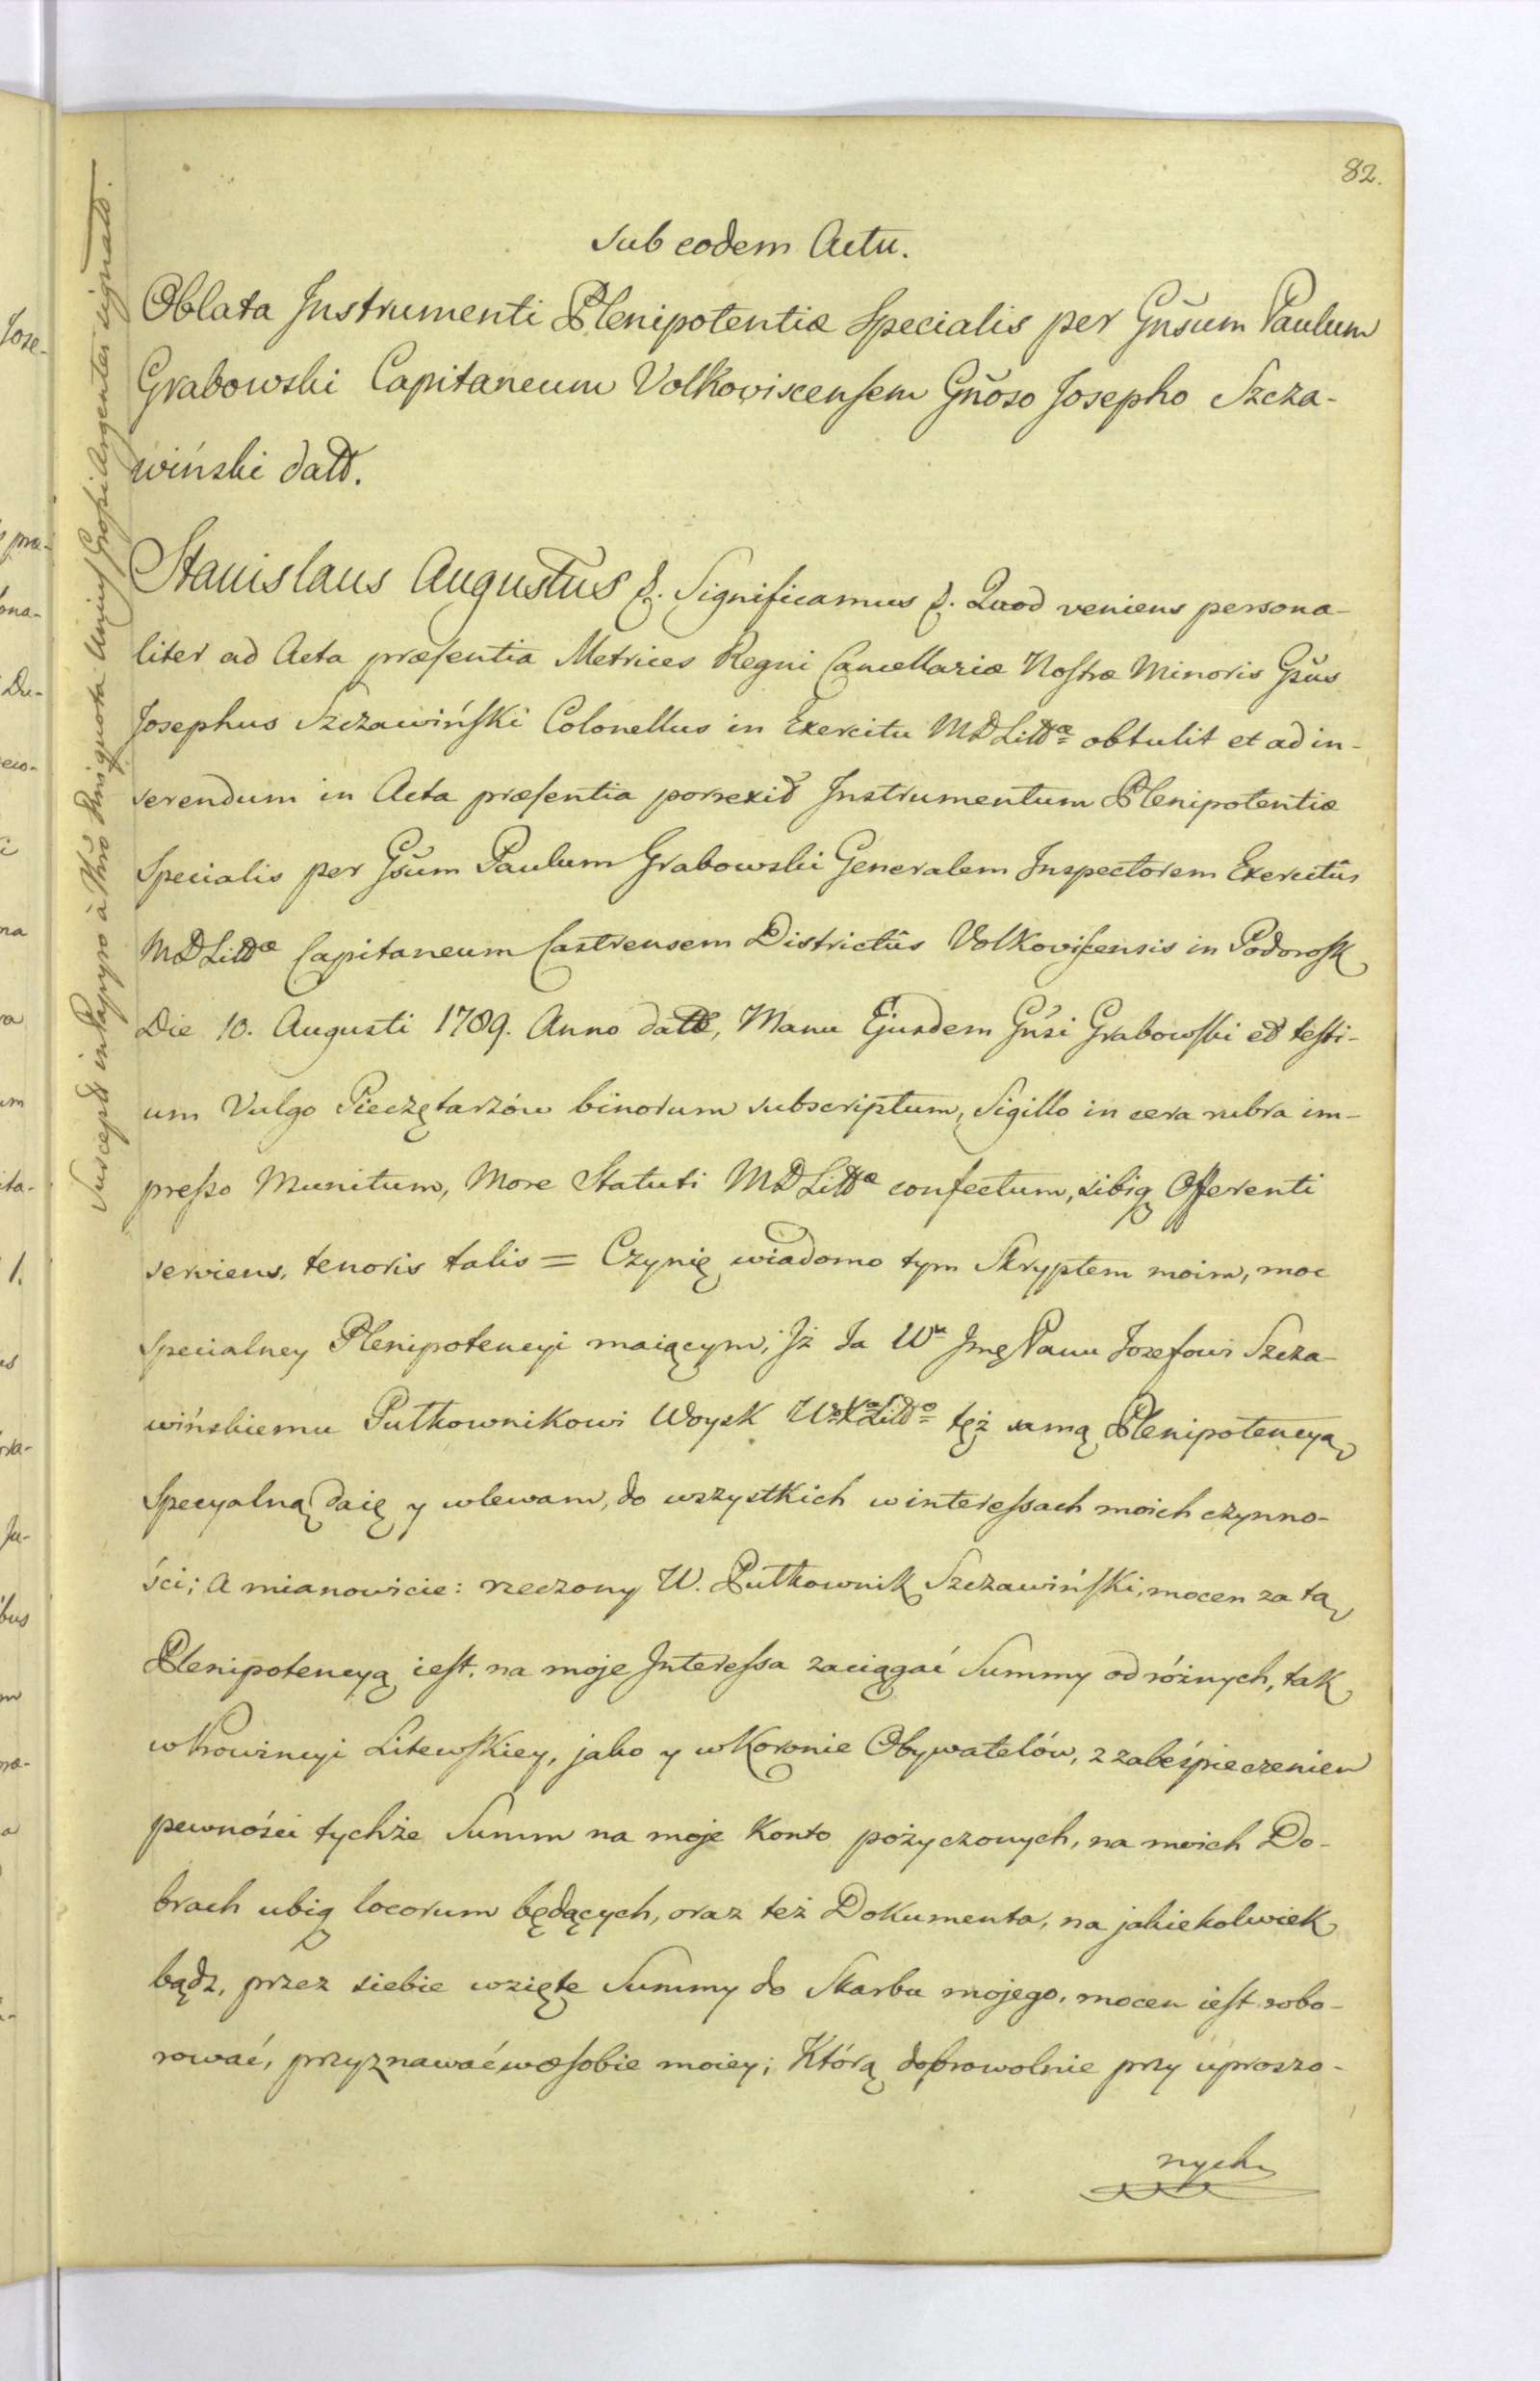 82.
Sub eodem Actu.
Oblata Instrumenti Plenipotentiæ Specialis per Gn̄sum Paulum
Grabowski Capitaneum Volkoviscensem Gn̄oso Josepho Szcza-
wiński datt.
Stanislaus Augustus &. Significamus &. Quod veniens persona-
liter ad Acta præsentia Metrices Regni Cancellariæ Nostræ Minoris Gn̄sus
Josephus Szczawiński Colonellus in Exercitu MDLittæ obtulit et ad in-
serendum in Acta præsentia porrexit Instrumentum Plenipotentiæ
Specialis per Gn̄sum Paulum Grabowski Generalem Inspectorem Exercitûs
MDLittæ Capitaneum Castrensem Districtûs Volkoviscensis in Podorosk
Die 10. Augusti 1789. Anno datt, Manu Ejusdem Gn̄si Grabowski et testi-
um Vulgo Pieczętarzów binorum subscriptum, Sigillo in cera rubra im-
presso Munitum, More Statuti MDLittæ confectum, sibiq Offerenti
serviens, tenoris talis = Czynię wiadomo tym Skryptem moim, moc
Specialney Plenipotencyi maiącym; Iż Ja Wu Jmę Panu Jozefowi Szcza-
wińskiemu Pułkownikowi Woysk WoXaLitto tęż samą Plenipotencyą
Specyalną daię y wlewam, do wszystkich w interessach moich czynno-
ści; A mianowicie: rzeczony W. Pułkownik Szczawiński, mocen za tą
Plenipotencyą iest, na moje Interessa zaciągać Summy od różnych, tak
w Prowincyi Litewskiey, jako y w Koronie Obywatelów, z zabeśpieczeniem
pewności tychże Summ na moje Konto pożyczonych, na moich Do-
brach ubiq locorum będących, oraz też Dokumenta, na jakiekolwiek
bądz, przez siebie wzięte Summy do Skarbu mojego, mocen iest robo-
rować, przyznawać w osobie moiey; Którą dobrowolnie przy uproszo-
nych
Suscept in Papyro à Thro Rni quota Unius Grossi Argentei signato.